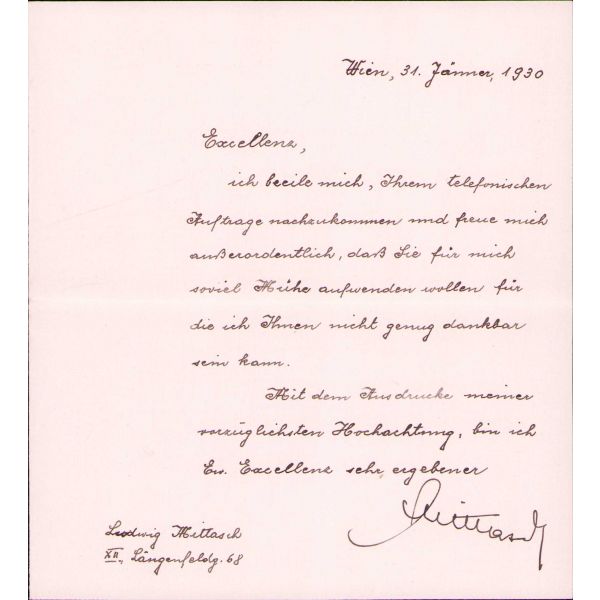 Wien, 31. Jänner, 1930
Excellenz,
ich beeile mich, Ihrem telefonischen
Auftrage nachzukommen und freue mich
außerordentlich, daß Sie für mich
soviel Mühe aufwenden wollen für
die ich Ihnen nicht genug dankbar
sein kann.
Mit dem Ausdrucke meiner
vorzüglichsten Hochachtung, bin ich
Ew. Excellenz sehr ergebener
Mittasch
Ludwig Mittasch
XII., Längenfeldg. 68